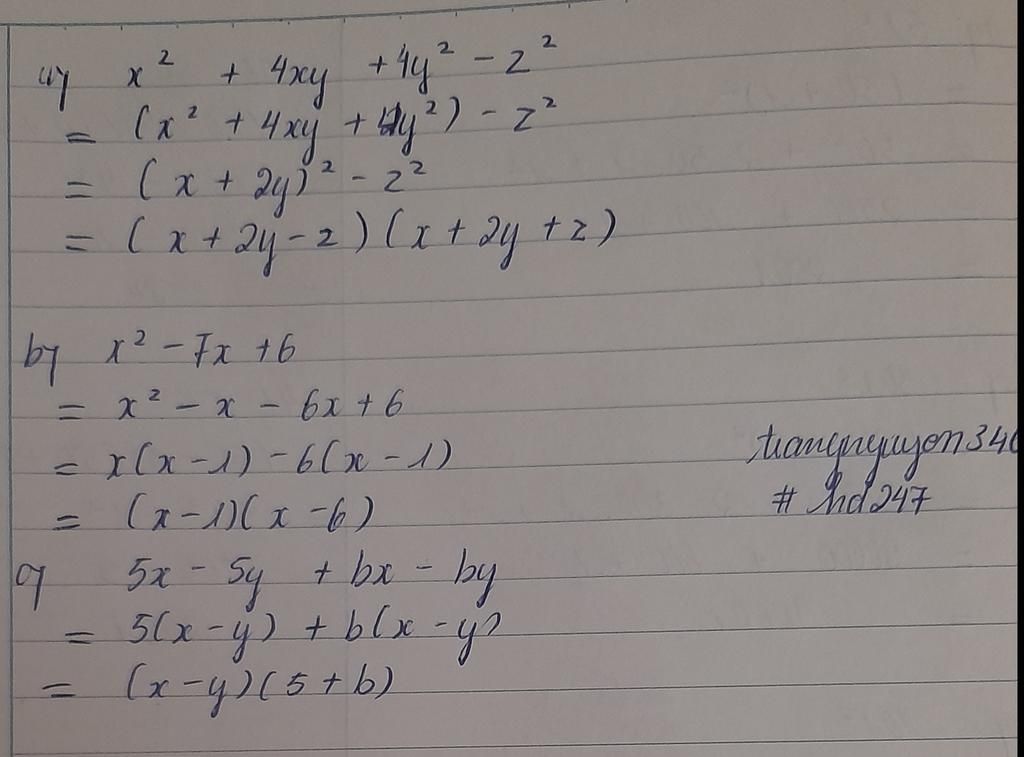 a) x² + 4xy + 4y² - z²
= (x² + 4xy + 4y²) - z²
= (x + 2y)² - z²
= (x + 2y - z)(x + 2y + z)
b) x² - 7x + 6
= x² - x - 6x + 6
= x(x - 1) - 6(x - 1)
= (x - 1)(x - 6)
c) 5x - 5y + bx - by
= 5(x - y) + b(x - y)
= (x - y)(5 + b)
# hd247